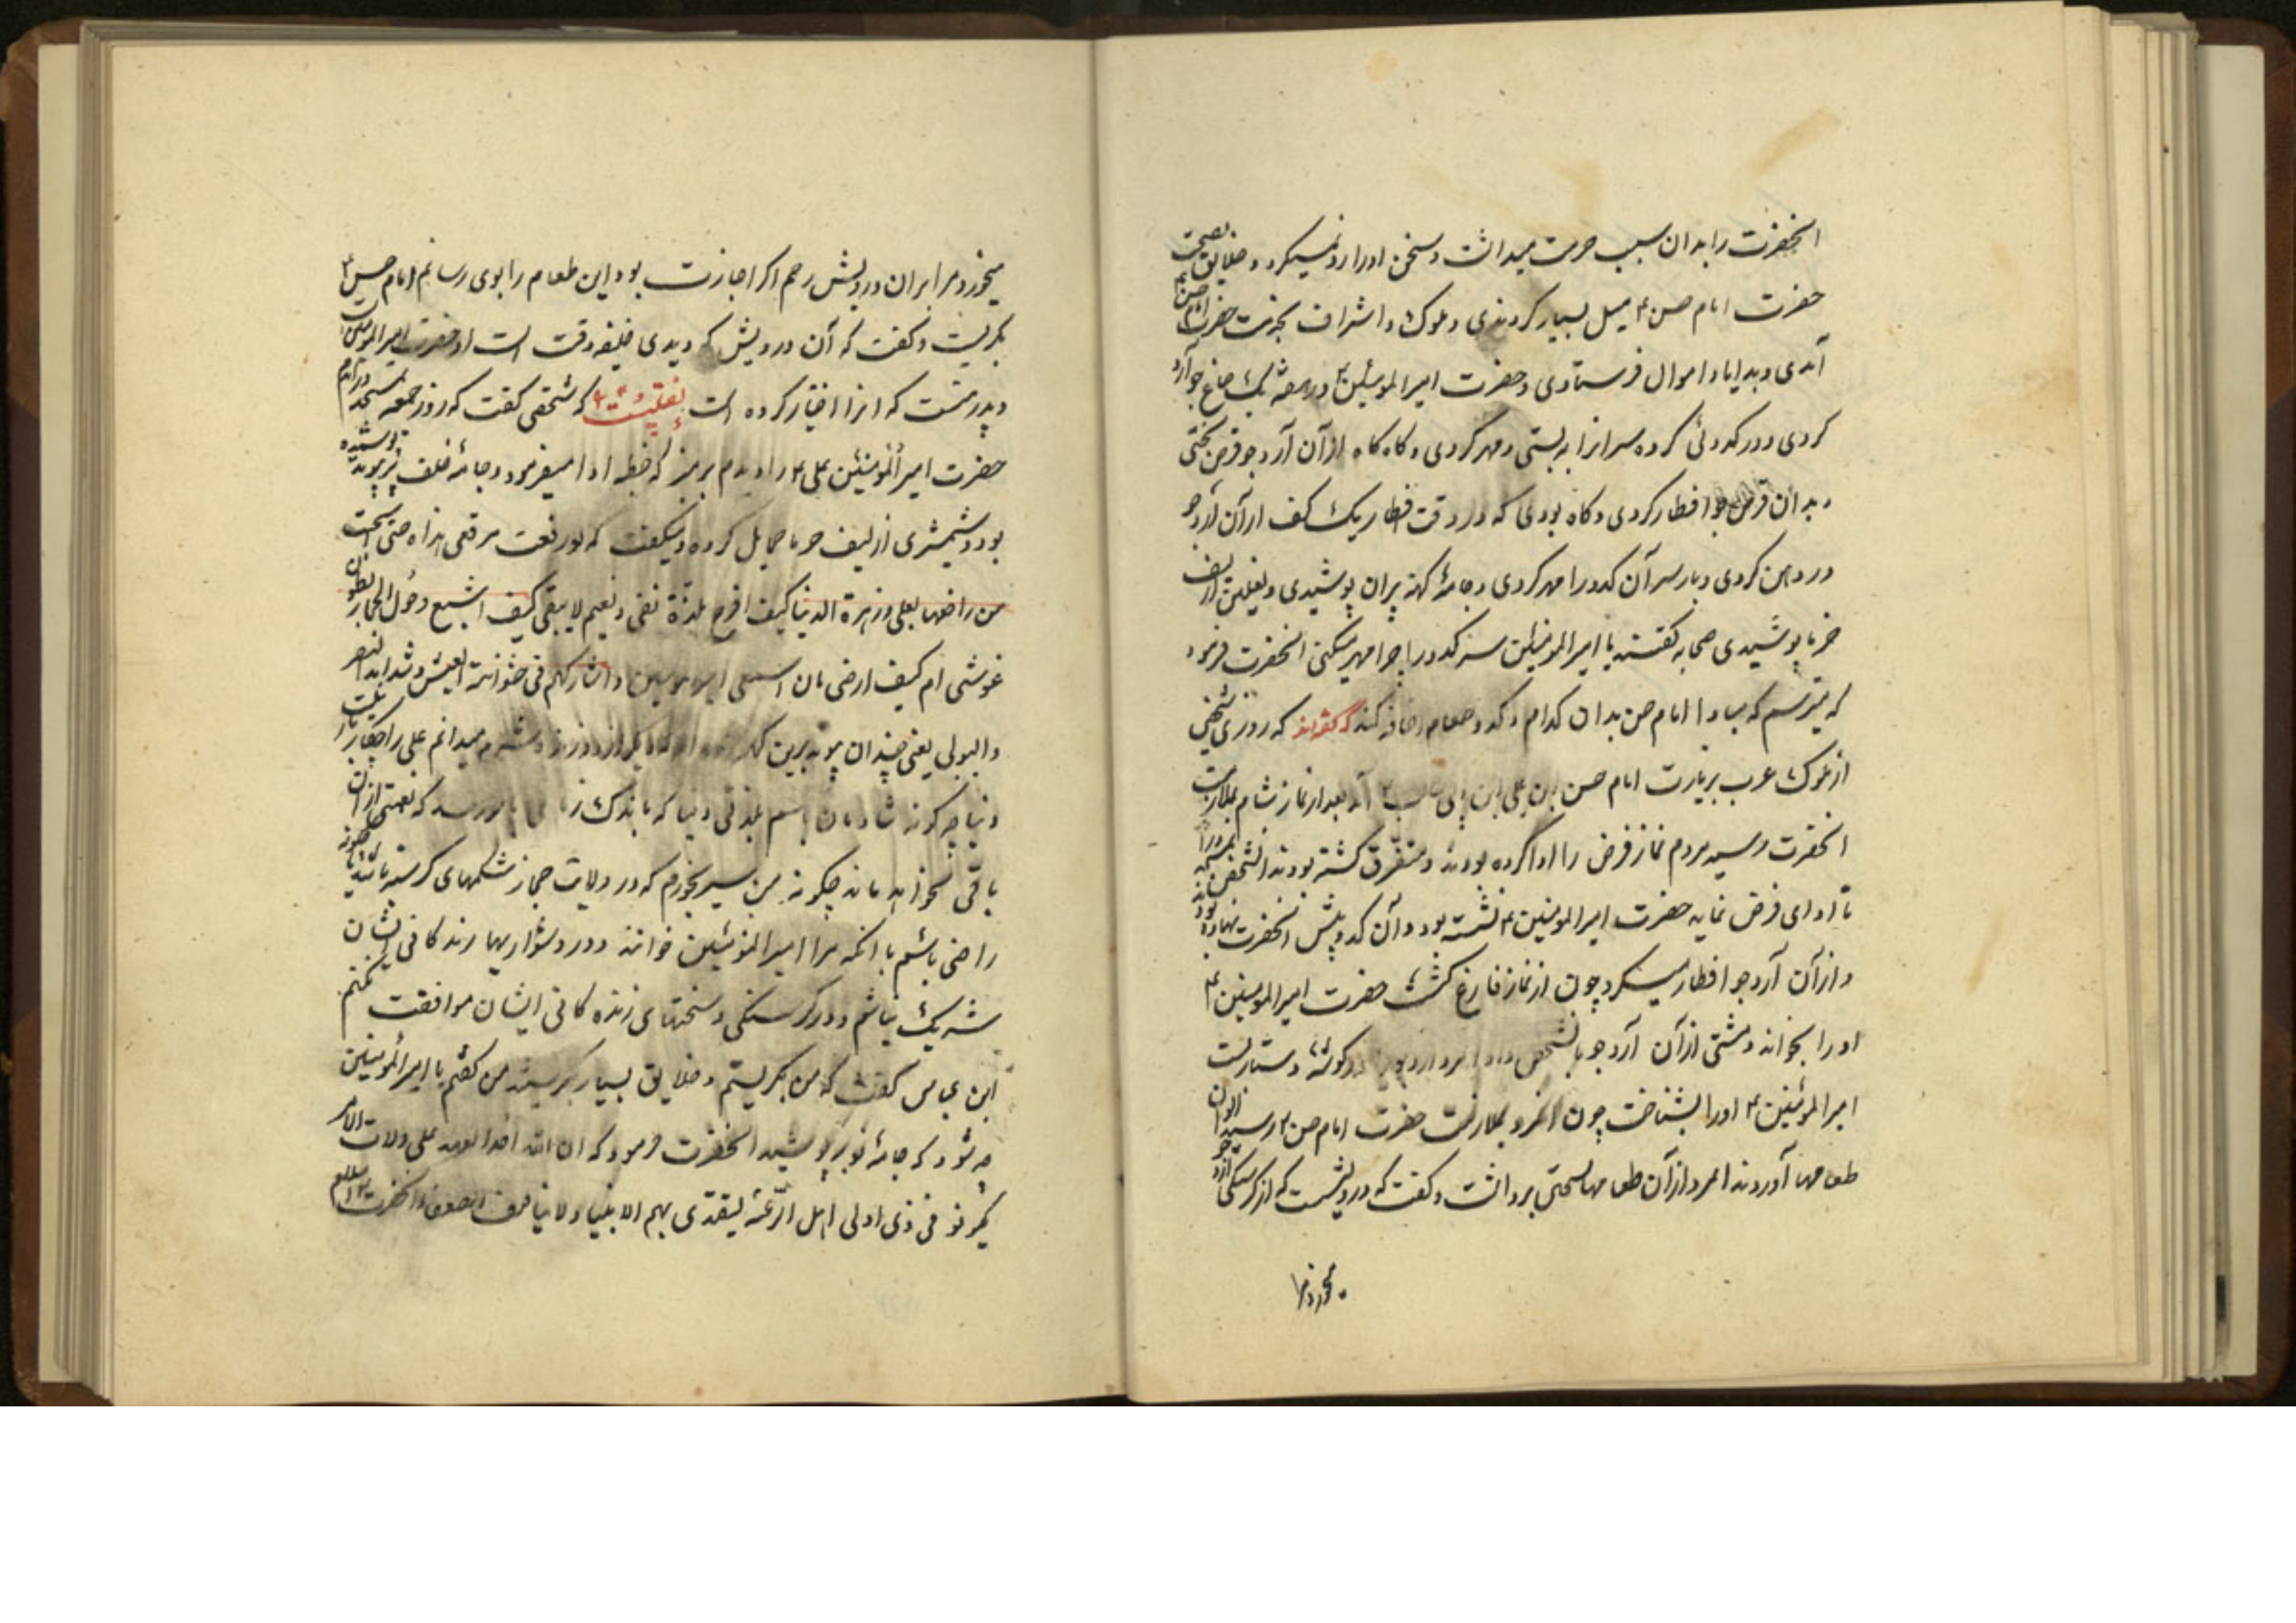 انحضرت را بدان سبب حرمت میداشت و سخن او را رد نمیکرد و خلایق بصحبت
حضرت امام حسن ع میل بسیار کردندی و ملوک و اشراف بخدمت حضرت امام حسن ع
آمدی و هدایا و اموال فرستادی و حضرت امیرالمومنین ع در هفته یک صاع جو آرد
کردی و در کدوئی کرده سر انرا به بستی و مهر کردی و کاه کاه از آن آرد جو قرص پختی
و بدان قرص جو افطار کردی و کاه بودی که در وقت افطار یک کف از آن آرد جو
در دهن کردی و باز سر آن کدو را مهر کردی و جامهٔ کهنه پران پوشیدی و نعلین از لیف
خرما پوشیدی صحابه کفتند یا امیرالمومنین سر کدو را چرا مهر میکنی انحضرت فرمود
که میترسم که مبادا امام حسن بدان کدام کدو طعام اضافه کند کفته‌اند که روزی شخصی
از ملوک عرب بزیارت امام حسن ابن علی ابن ابی طالب ع آمد بعد از نماز شام بملازمت
انحضرت رسید مردم نماز فرض را ادا کرده بودند و متفرق کشته بودند انشخص
تا ادای فرض نماید حضرت امیرالمومنین ع نشسته بود و آن کدو پیش انحضرت نهاده بود
و از آن آرد جو افطار میکرد چون از نماز فارغ کشت حضرت امیرالمومنین ع
او را بخواند و مشتی از آن آرد جو بانشخص داد انمرد ارد جو را در کوشهٔ دستار بست
امیرالمومنین ع او را بشناخت چون انمرد بملازمت حضرت امام حسن ع رسید الوان
طعامها آوردند انمرد از آن طعامها لختی برداشت و کفت که درویشیست که از کرسنکی آرد جو
میخورد مرا
میخورد مرا بران درویش رحم اکر اجازت بود این طعام را بوی رسانم امام حسن ع
بکریست و کفت که آن درویش که دیدی خلیفه وقت است او حضرت امیرالمومنین است
و پدر منست که انرا اختیار کرده است نقلیست که شخصی کفت که روز جمعه بمسجد درآمدم
حضرت امیرالمومنین علی ع را دیدم بر منبر که خطبه ادا میفرمود و جامهٔ خلف پر پیوند پوشیده
بود و شمشیری از لیف خرما حمایل کرده و میکفت که لو رقعت مرقعی هذاه حتی استحیت
من راقعها لعلی وزهرة الدنیا کیف افرح بلذة تفنی ونعیم لا یبقی کیف اشبع وحول الحجاز بطون
غرثی ام کیف ارضی بان اسمی امیرالمومنین و اشارکهم فی خشونة العیش و شداید الضر
والبولی یعنی چندان پیوند برین که از دوزنده شرم میدانم علی را چکار با زینت
دنیا چه کونه شادمان باشم بلذتی دنیا که باندک زمانی بسر رسد که نعمتی از آن
باقی نخواهد ماند چکونه من سیر بخورم که در ولایت حجاز شکمهای کرسنه باشند چکونه
راضی باشم بانکه مرا امیرالمومنین خوانند و در دشواریها زندکانی ایشان
شریک نباشم و در کرسنکی و سختیهای زنده کانی ایشان موافقت نکنم
ابن عباس کفت که من بکریستم و خلایق بسیار بکریستند من کفتم یا امیرالمومنین
چه شود که جامهٔ نو بپوشید انحضرت فرمود که ان الله اخذ العهد علی ولات الامر
ان یکونو فی زی اولی اهل الرعیه لیقتدی بهم الاغنیا و لا یخاف الضعفاء انحضرت